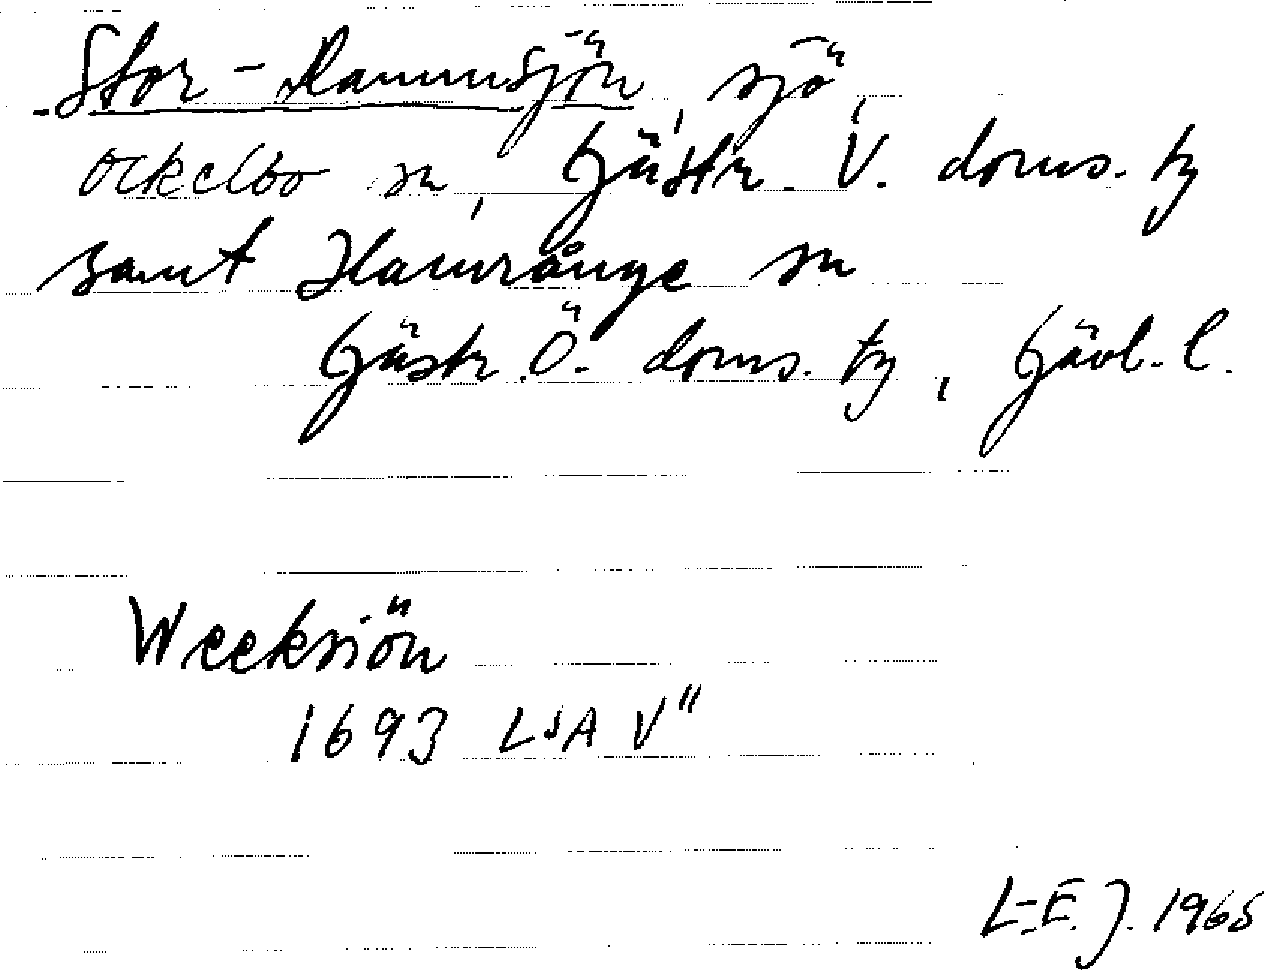 Stor-Ramnsjön, sjö,
Ockelbo sn, Gästr. V. doms. tg
samt Hamrånge sn
Gästr. Ö. doms. tg, Gävl. l.
Weeksiön
1693 LSA V"
L-E. J. 1965